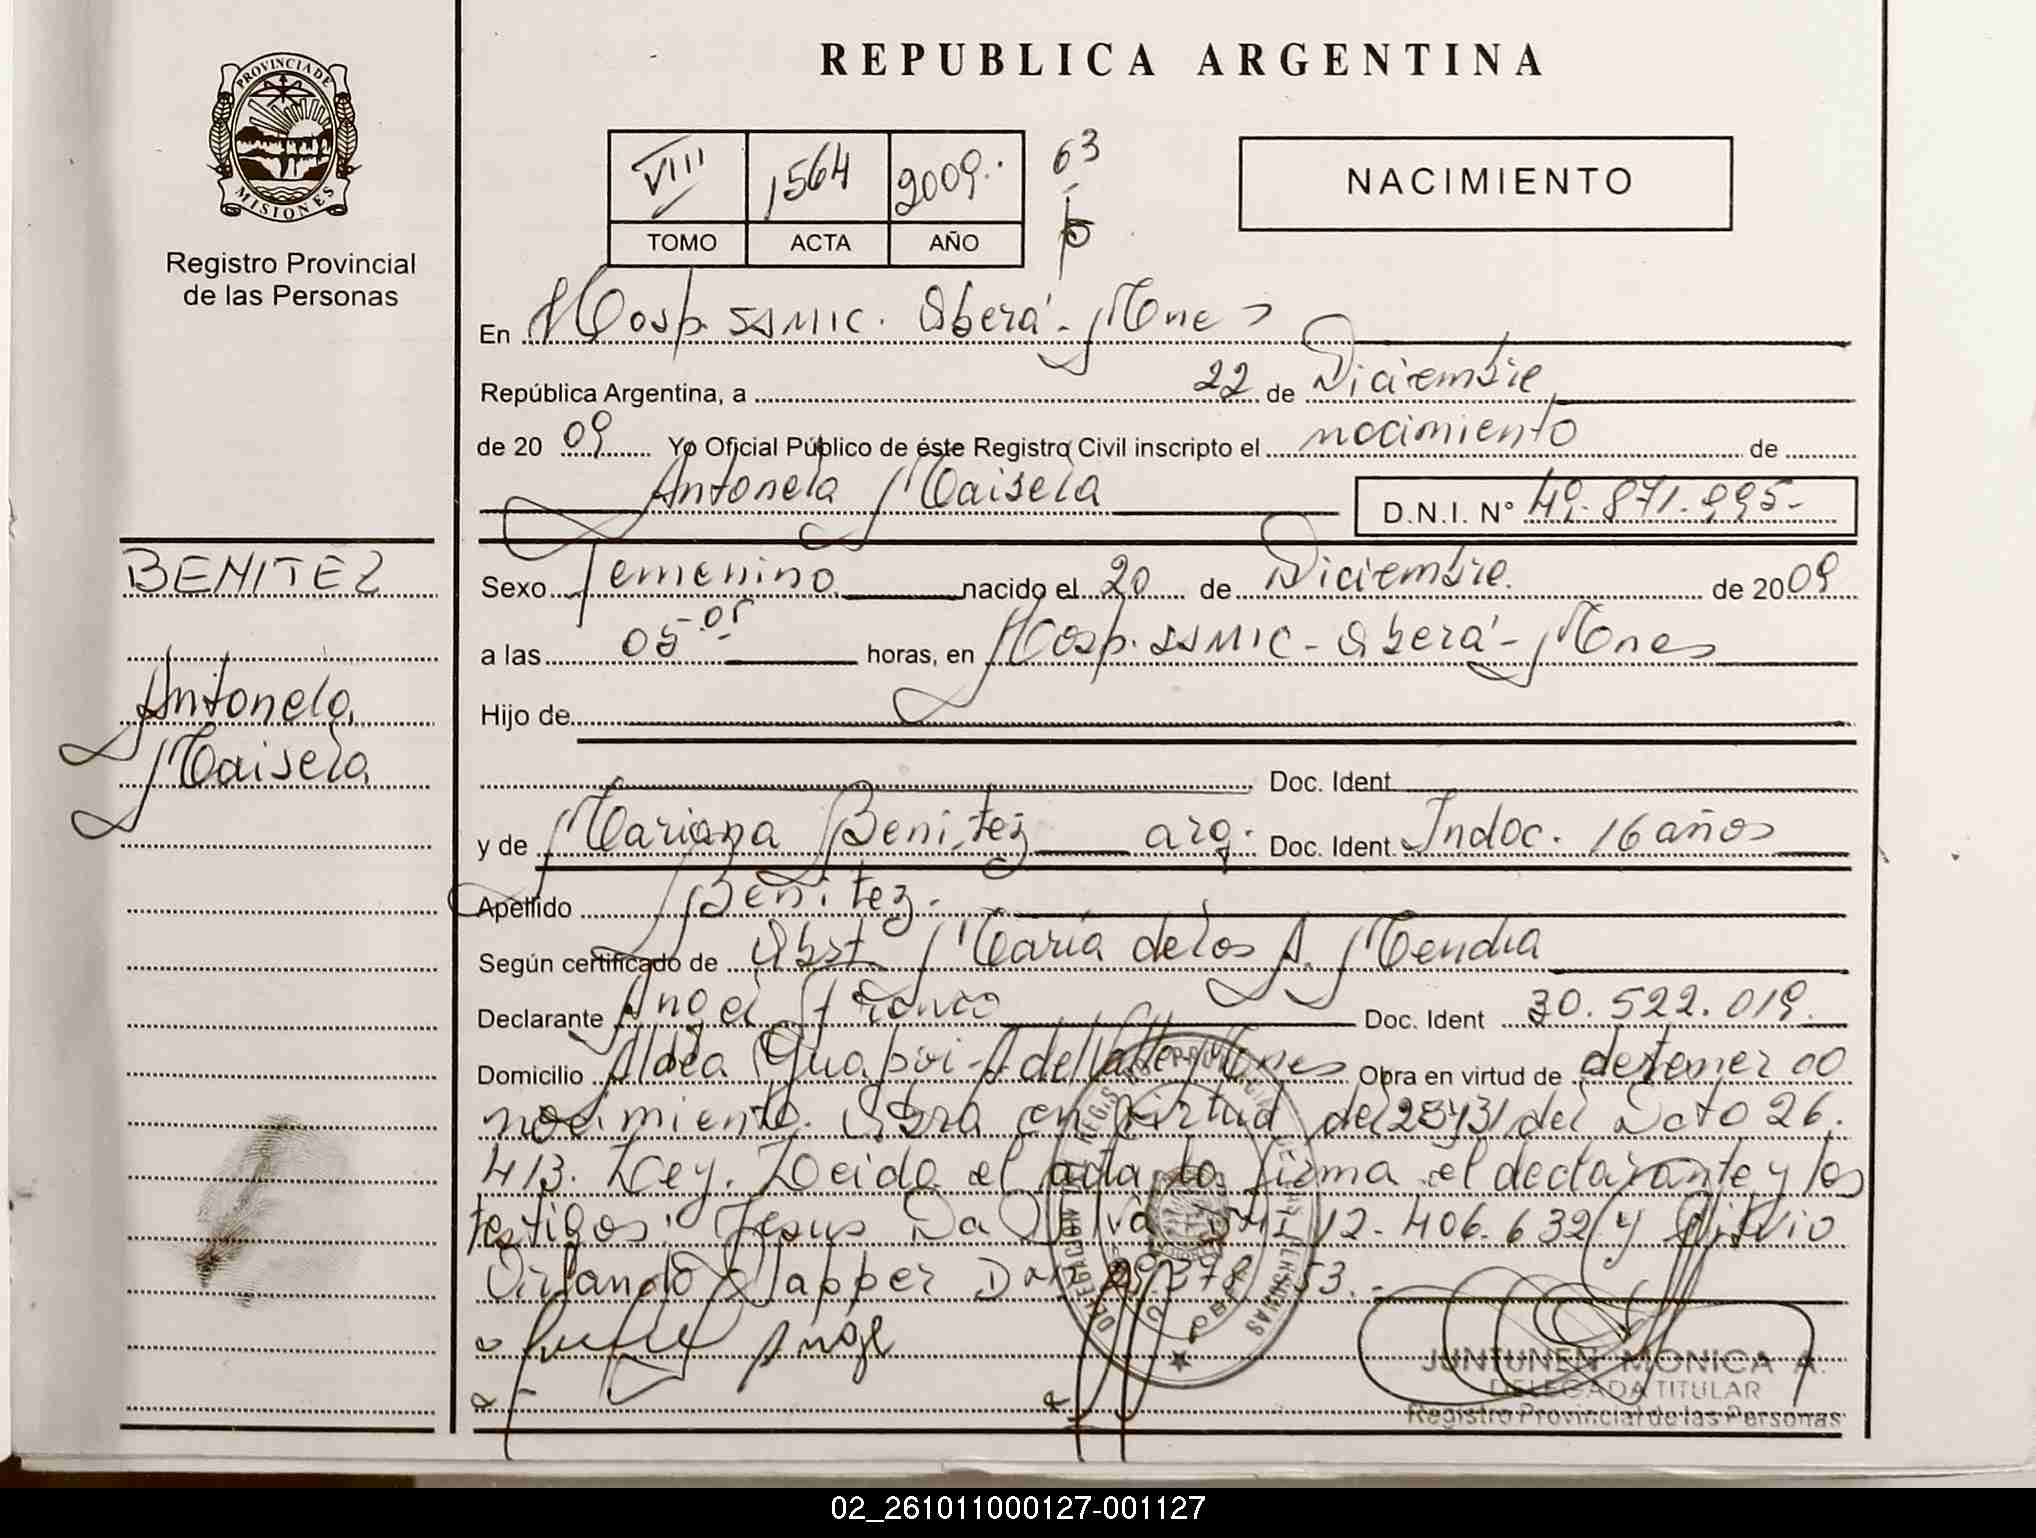 REPUBLICA ARGENTINA
PROVINCIA DE MISIONES
Registro Provincial
de las Personas
VIII 1564 2009.. 63
TOMO ACTA AÑO
NACIMIENTO
En Hosp. SAMIC. Oberá - Mnes
República Argentina, a 22 de Diciembre
de 20 09 Yo Oficial Público de éste Registro Civil inscripto el nacimiento de
Antonela Maisela D.N.I. N° 49.871.995.-
BENITEZ
Antonela
Maisela
Sexo Femenino nacido el 20 de Diciembre. de 2009
a las 05-05- horas, en Hosp. SAMIC - Oberá - Mones
Hijo de
Doc. Ident
y de Mariana Benitez arg. Doc. Ident. Indoc. 16 años
Apellido Benitez.
Según certificado de Obst. María de los A. Mendia
Declarante Angel Franco Doc. Ident 30.522.019.
Domicilio Aldea Guaporí - A del Valle Mnes Obra en virtud de
nacimiento. Obra en virtud del del Dcto 26.
413. Ley. Leida el acta la firma el declarante y los
testigos: Jesus Da Silva DNI 12-406.632 y Silvio
Orlando Dni
Angel
JUNTUNEN MONICA A.
DELEGADA TITULAR
Registro Provincial de las Personas
02_261011000127-001127